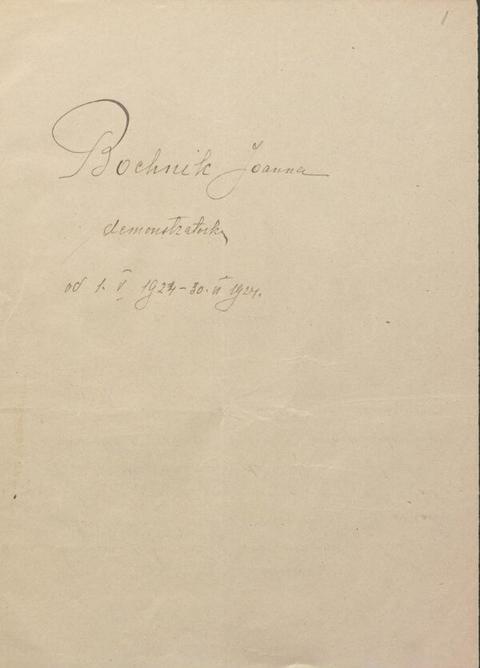 1
Bochnik Joanna
demonstratorka
od 1. V 1924 - 30. VI 1924.